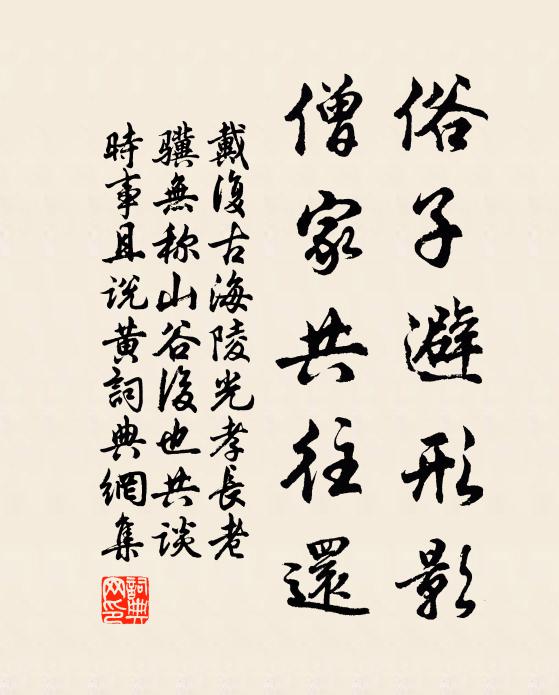 俗子避形影
僧家共往還
戴復古海陵光孝長老
驥無称山谷後也共談
時事且説黄詞典網集
詞典網印